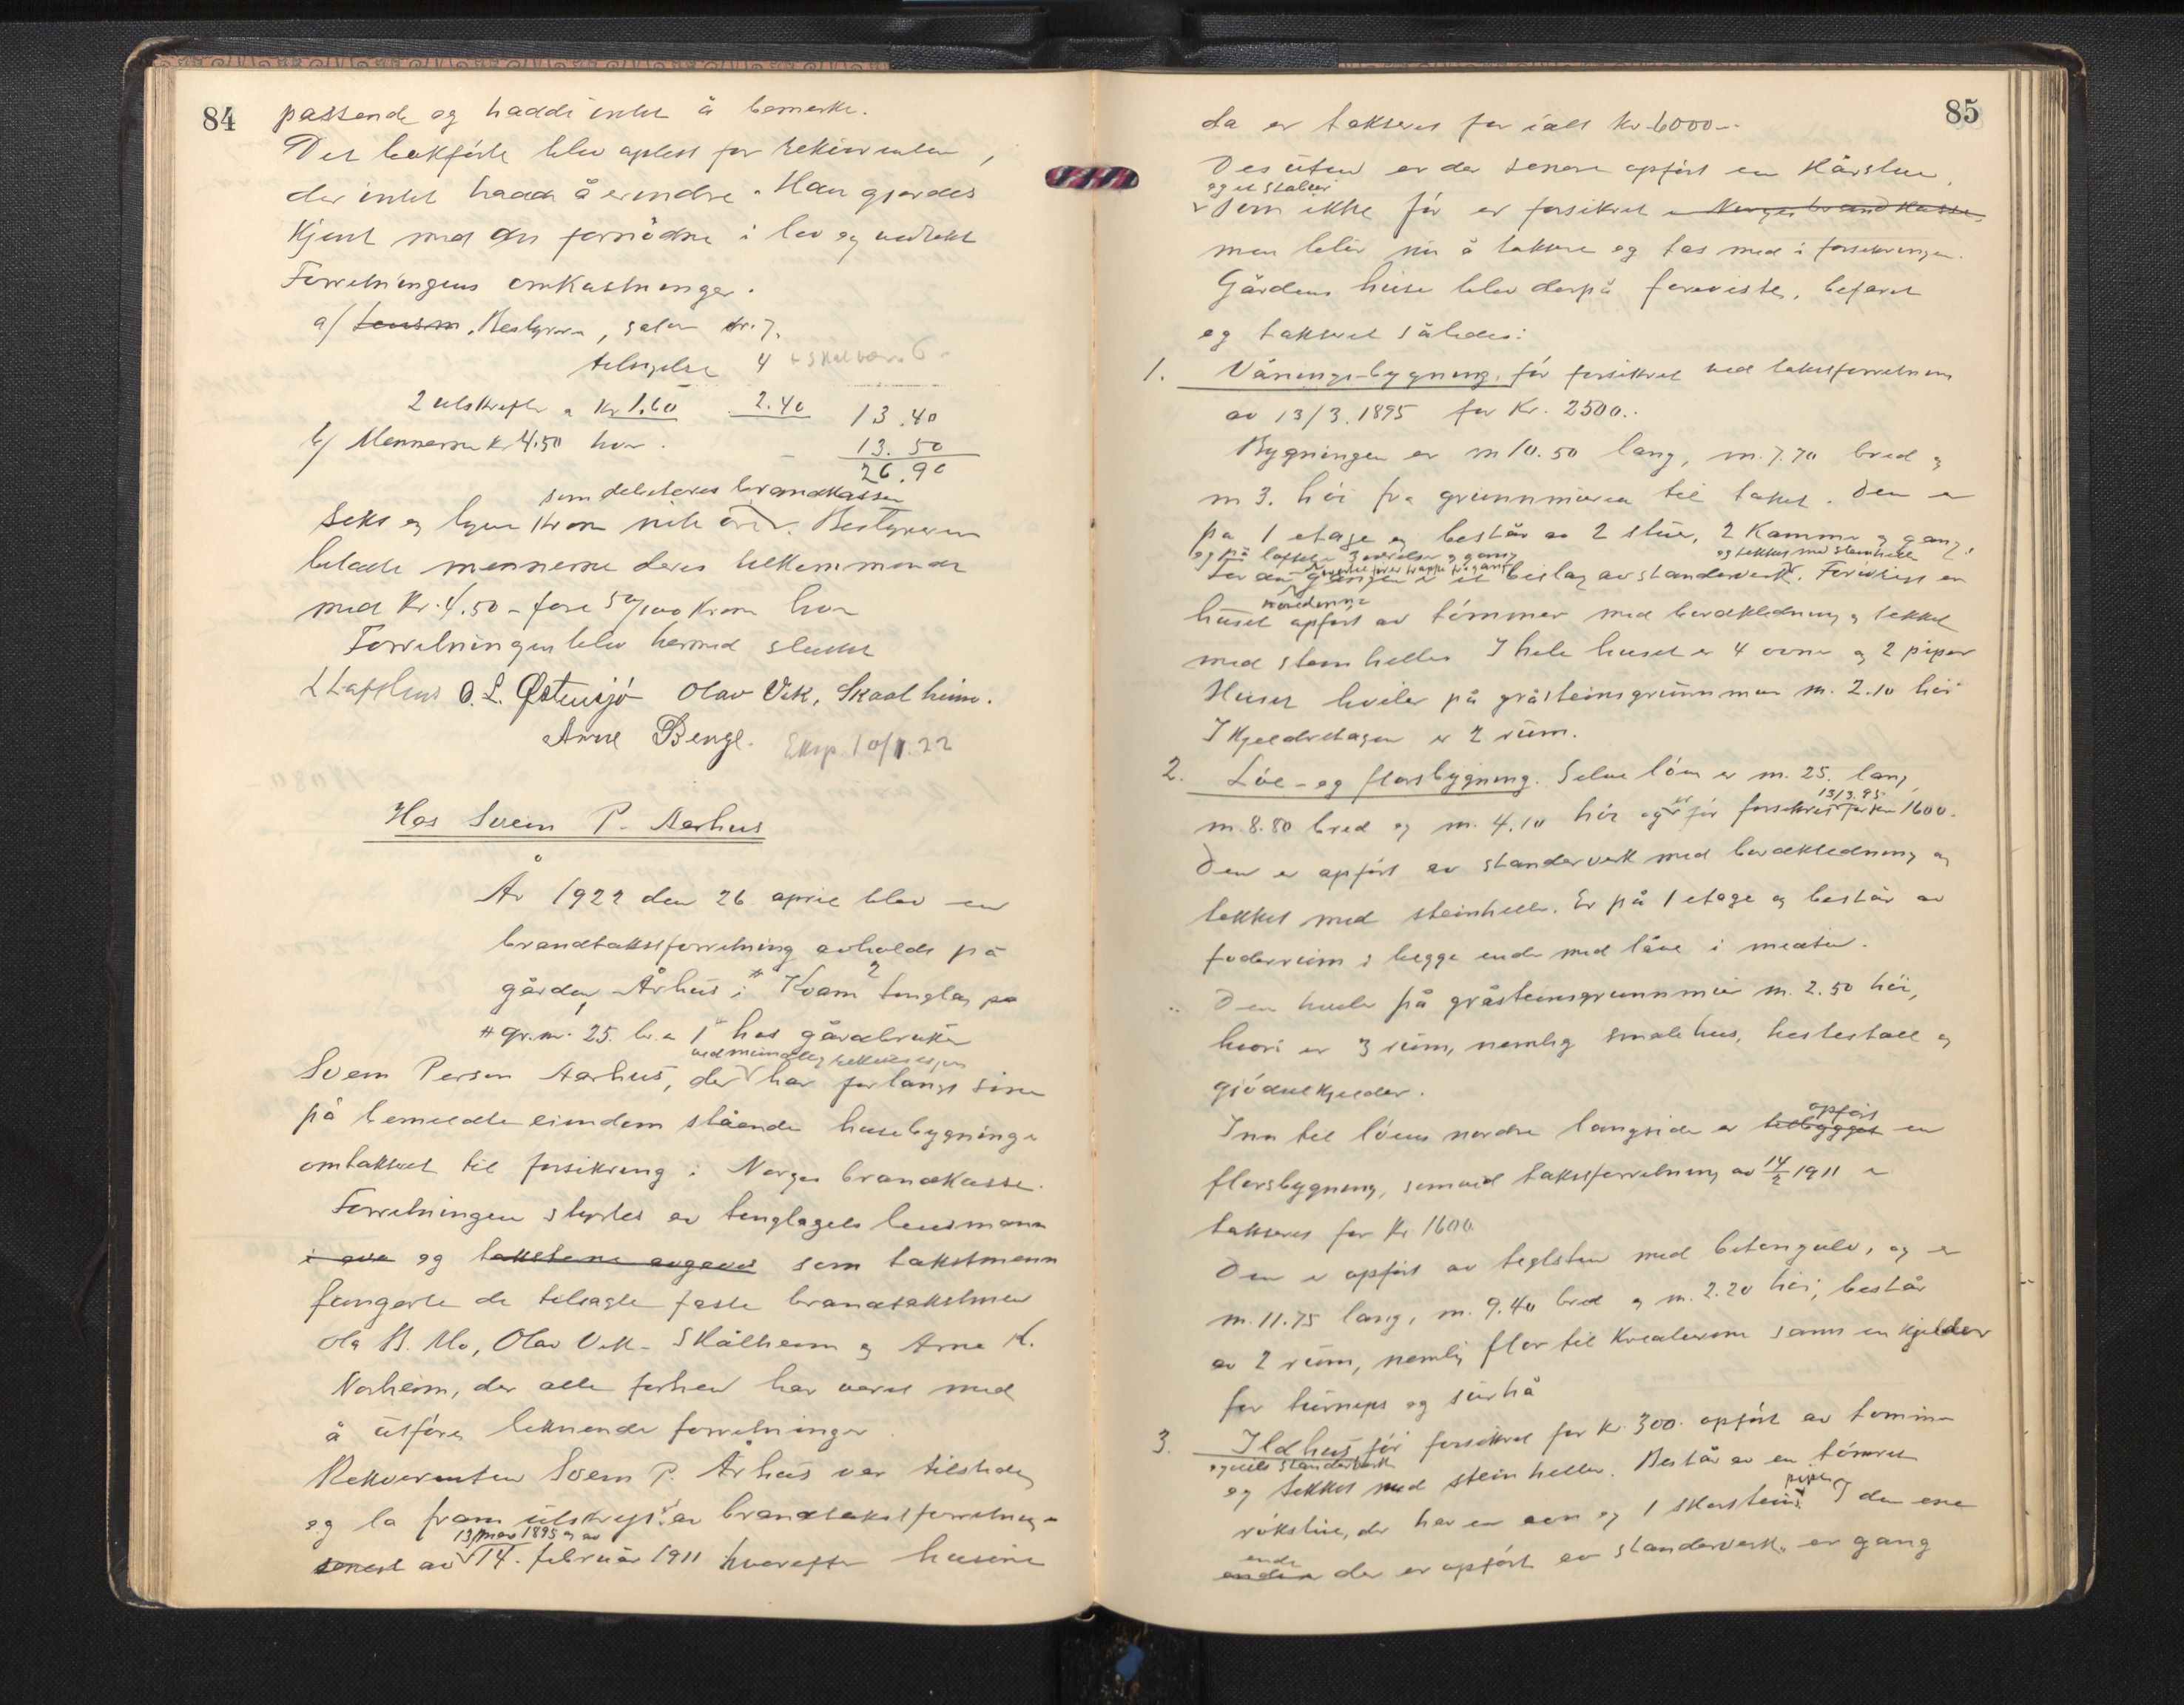 84
passende og hadde intet å bemerke.
Det bokførte blev oplest for rekvirenten,
der intet hadde å erindre. Han gjordes
kjent med det fornødne i lov og vedtekt
Forretningens omkostninger.
a/ Lensm. Bestyreren, salær kr. 7.
tilsigelse 4 + skal være 6 -
2 utskrifter a Kr 1.60 2.40 13.40
b/ Mennerne kr 4.50 hver. 13.50
26.90
som debiteres brandkassen
Seks og tyve kroner nitti øre. Bestyreren
betalte mennerne deres tilkommende
med kr. 4.50 - fire 50/100 kroner hver
Forretningen blev hermed sluttet
O. L. Østensjö Olav Vik, Skaalheim.
Arne Berge. Eksp. 10/1.22
Hos Svein P. Aarhus
År 1922 den 26 april blev en
brandtakstforretning avholdt på
gården Århus i Kvam tinglag på
# gr.nr. 25. br.n 1 # hos gårdbruker
ved muntlig rekvisisjon
Svein Person Aarhus, der har forlangt sine
på bemeldte eiendom stående husebygninger
omtaksert til forsikring i Norges brandkasse.
Forretningen styrtes av tinglagets lensmann
og takstene avgaves som takstmenn
fungerte de tilsagte faste brandtakstmenn
Ola B. Mo, Olav Vik - Skålheim og Arne K.
Norheim, der alle forhen har været med
å utføre liknende forretninger.
Rekvirenten Svein P. Århus var tilstede
og la fram utskrift av brandtakstforretning
13 mar 1895 og av
senest av 14. februar 1911 hvorefter husene
85
da er taksert for ialt kr 6000.-
Desuten er der senere opført en Kårstue,
og et stabur
som ikke før er forsikret i Norges brandkasse,
men blir nu å taksere og tas med i forsikringen.
Gårdens huse blev derpå forevist, befaret
og taksert således:
1. Våningsbygning, før forsikret ved takstforretning
av 13/3.1895 for kr. 2500..
Bygningen er m 10.50 lang, m. 7.70 bred og
m 3. høi fra grunnmuren til taket. Den er
på 1 etage og består av 2 stuer, 2 kammer og gang,
og på loftet 3 værelser og gang
og tekket med steinheller
foran gangen er et bislag av standerverk. Forøvrig er
huset opført av tømmer med bordkledning og tekket
med steinheller I hele huset er 4 ovner og 2 piper
Huset hviler på gråsteinsgrunnmur m. 2.10 høi
I kjelderetagen er 2 rum.
2. Løe- og florsbygning. Selve løen er m. 25. lang,
13/3.95
m. 8.80 bred og m. 4.10 høi og er før forsikret for kr 1600.
Den er opført av standerverk med bordkledning og
tekket med steinheller. Er på 1 etage og består av
foderrum i begge ender med låve i midten.
Den hviler på gråsteinsgrunnmur m. 2.50 høi,
hvori er 3 rum, nemlig smalehus, hestestall og
gjødselkjelder.
opført
Inn til løens nordre langside er tilbygget en
florsbygning, som ved takstforretning av 14/2 1911 er
taksert for kr 1600
Den er opført av teglsten med betongulv, og er
m. 11.75 lang, m. 9.40 bred og m. 2.20 høi, består
av 2 rum, nemlig flor til kreaturene samt en kjelder
for turnips og surhå
3. Ildhus, før forsikret for kr. 300. opført av tømmer
og dels standerverk
og tekket med steinheller. Består av en tømret
pipe
røkstue, der har en ovn og 1 skorstein. I den ene
ende
enden der er opført av standerverk, er gang